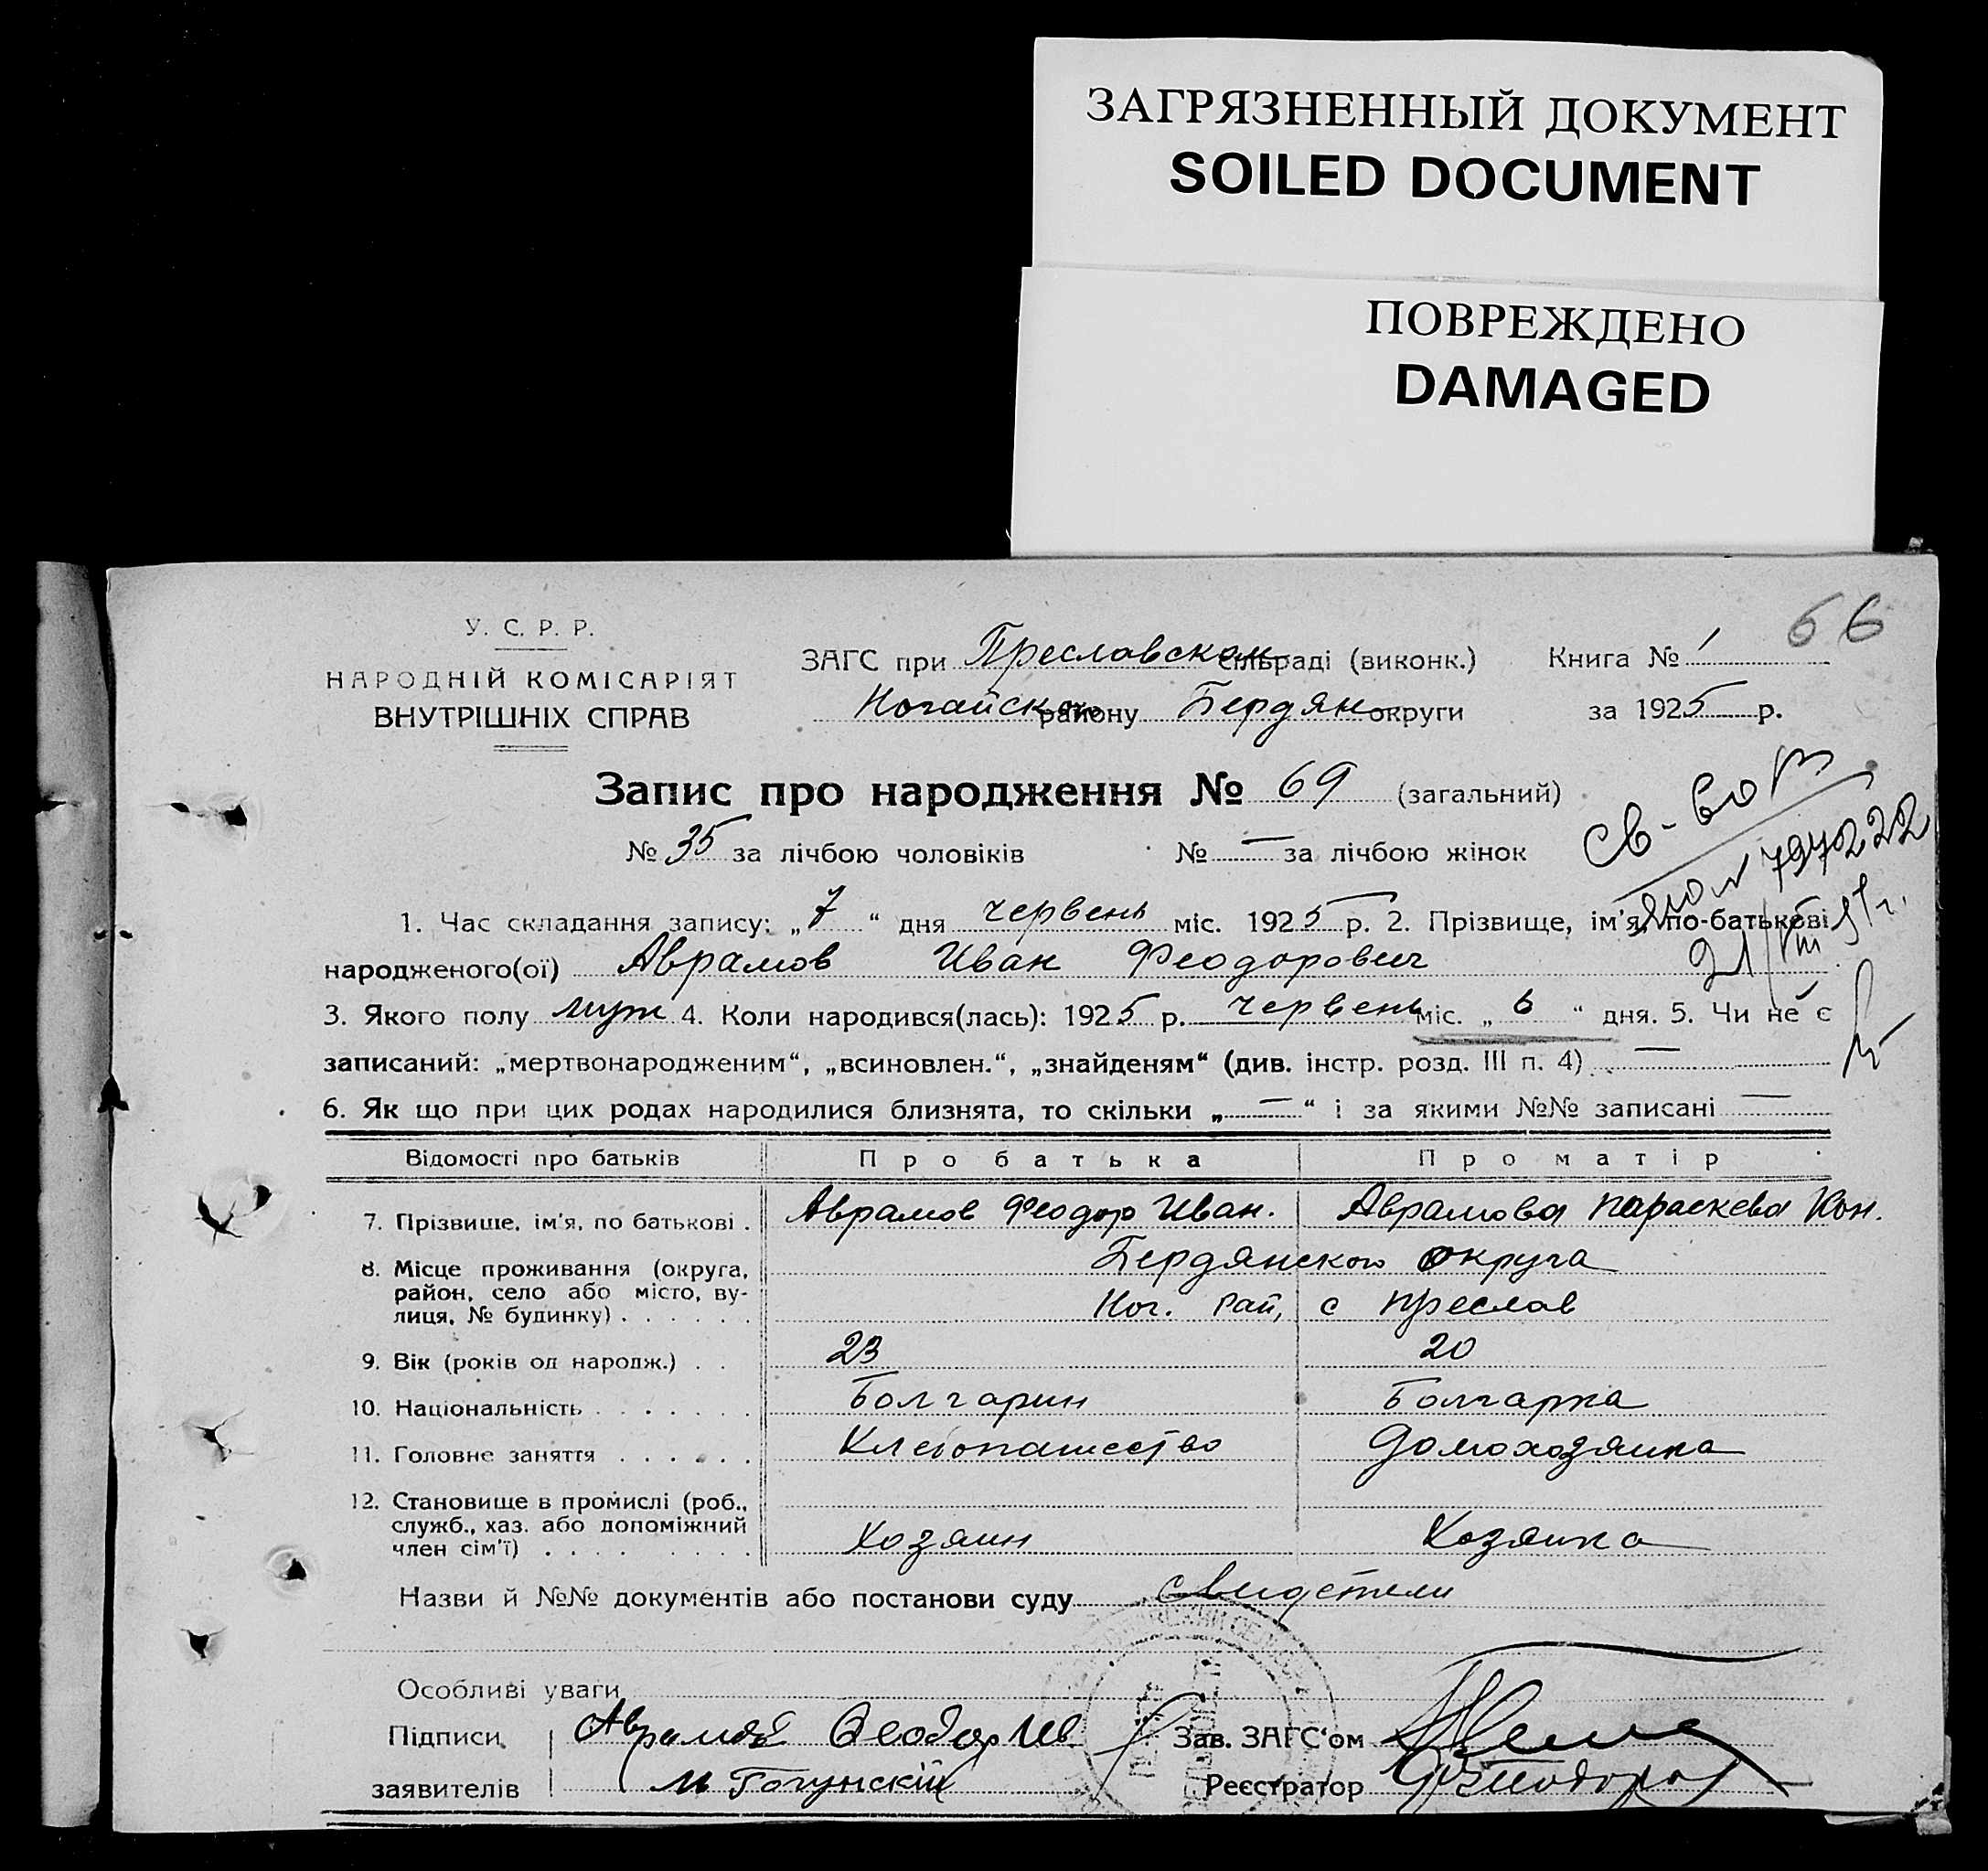 ЗАГРЯЗНЕННЫЙ ДОКУМЕНТ
SOILED DOCUMENT
ПОВРЕЖДЕНО
DAMAGED
66
У. С. Р. Р.
НАРОДНІЙ КОМІСАРІЯТ
ВНУТРІШНІХ СПРАВ
ЗАГС при Преславском сільраді (виконк.) Книга № 1
Ногайско району Бердян округи за 1925 р.
Запис про народження № 69 (загальний)
№ 35 за лічбою чоловіків № — за лічбою жінок
св-во
797222
1. Час складання запису: „7“ дня червень міс. 1925 р. 2. Прізвище, ім'я, по-батькові
народженого(ої) Аврамов Иван Феодорович
3. Якого полу муж 4. Коли народився(лась): 1925 р. червень міс. „6“ дня. 5. Чи не є
записаний: „мертвонародженим“, „всиновлен.“, „знайденям“ (див. інстр. розд. III п. 4) —
6. Як що при цих родах народилися близнята, то скільки „—“ і за якими №№ записані —
Відомості про батьків Про батька Про матір
7. Прізвище, ім'я, по батькові . Аврамов Феодор Иван. Аврамова Параскева Кон.
8. Місце проживання (округа, Бердянского округа
район, село або місто, ву- Ног. рай, с Преслав
лиця, № будинку) . . . . . .
9. Вік (років од народж.) . . 23 20
10. Національність . . . . . . Болгарин Болгарка
11. Головне заняття . . . . . . Клебопашество Домохозяика
12. Становище в промислі (роб.,
служб., хаз. або допоміжний
член сім'ї) . . . . . . . . . Хозяин Хозяика
Назви й №№ документів або постанови суду свидетели
Особливі уваги
Підписи Аврамов Феодор Ив. Зав. ЗАГС'ом
заявителів Реєстратор